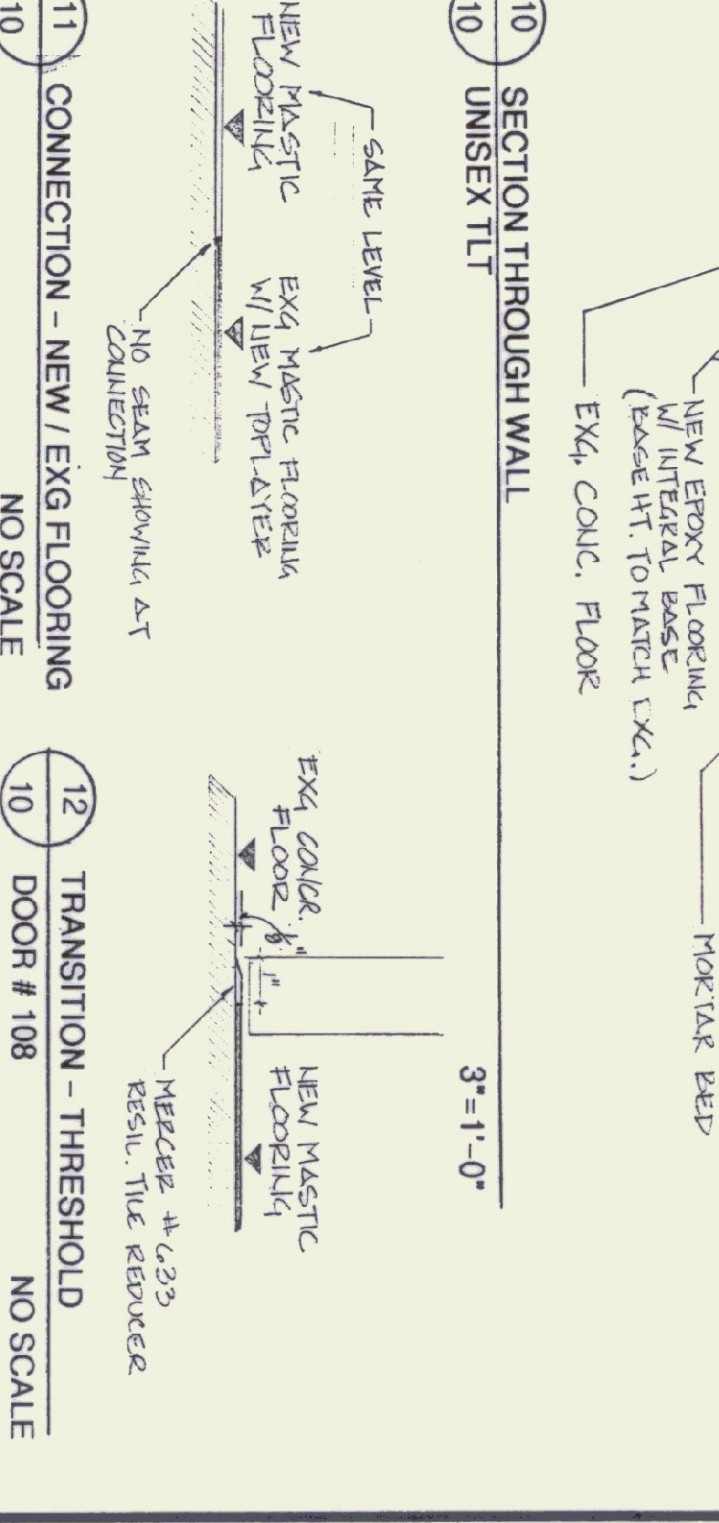 MORTAR BED
NEW EPOXY FLOORING
W/ INTEGRAL BASE
(BASE HT. TO MATCH EXG.)
EXG. CONC. FLOOR
10
10
SECTION THROUGH WALL
UNISEX TLT
3" = 1'-0"
SAME LEVEL
NEW MASTIC
FLOORING
EXG MASTIC FLOORING
W/ NEW TOPLAYER
NO SEAM SHOWING AT
CONNECTION
11
10
CONNECTION – NEW / EXG FLOORING
NO SCALE
EXG CONCR.
FLOOR
1/8"
1"
NEW MASTIC
FLOORING
MERCER #633
RESIL. TILE REDUCER
12
10
TRANSITION – THRESHOLD
DOOR # 108
NO SCALE